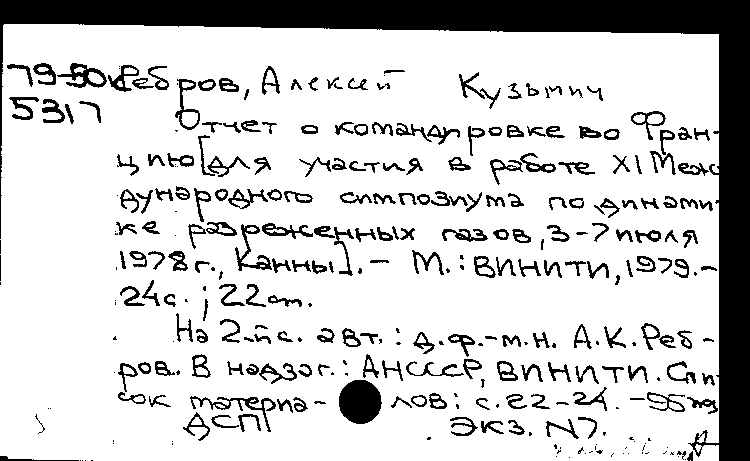 79-50к Ребров, Алексей Кузьмич
5317 Отчет о командировке во Фран-
цию [для участия в работе XI Меж
дународного симпозиума по динами-
ке разреженных газов, 3-7 июля
1978г., Канны]. - М.: ВИНИТИ, 1979. -
24с.; 22см.
На 2-й с. авт.: д.ф.-м.н. А.К. Реб-
ров. В надзаг.: АН СССР, ВИНИТИ. Спи-
сок материа- лов: с. 22-24. - 55
ДСП Экз. N7.